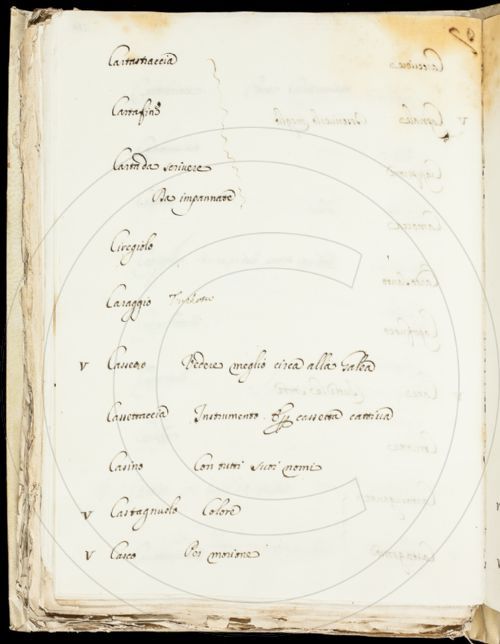 Cartastraccia
Cartafina
Carta da scrivere
Da impannate
Ciregiolo
Caraggio
V Cassero Vedere meglio circa alla Galea
Cassettaccia Instrumento. cassetta cattiva
Casino Con tutti suoi nomi
V Castagnuolo Colore
V Casco Per morione